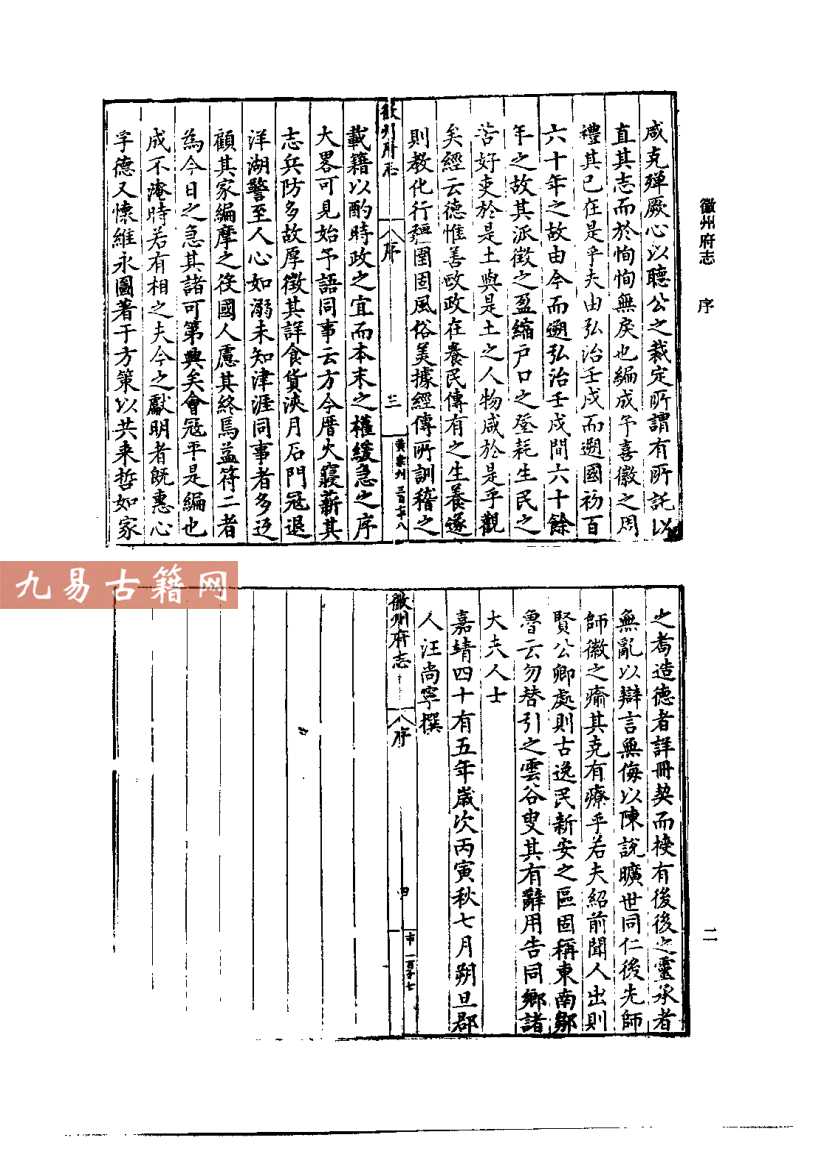 徽州府志 序
咸克殫厥心以聽公之裁定所謂有所託以
直其志而於恂恂無戾也編成予喜徽之周
禮其已在是乎夫由弘治壬戌而遡國初百
六十年之故由今而遡弘治壬戌間六十餘
年之故其派徵之盈縮戶口之登耗生民之
苦好吏於是土與是土之人物咸於是乎觀
矣經云德惟善政政在養民傳有之生養遂
則教化行囹圄固風俗美據經傳所訓稽之
徽州府志
序
三
載籍以酌時政之宜而本末之權緩急之序
大畧可見始予語同事云方今厝火寢薪其
志兵防多故厚徵其詳食貨浹月石門冠退
洋湖警至人心如溺未知津涯同事者多迃
顧其家編摩之役國人慮其終焉益符二者
為今日之急其諸可第興矣會冠平是編也
成不淹時若有相之夫今之獻明者既惠心
孚德又懷維永圖著于方策以共来哲如家
之喬造德者詳冊契而挍有後後之靈承者
無亂以辯言無侮以陳說曠世同仁後先師
師徽之瘠其克有療乎若夫紹前聞人出則
賢公卿處則古逸民新安之區固稱東南鄒
魯云勿替引之雲谷叟其有辭用告同鄉諸
大夫人士
嘉靖四十有五年歲次丙寅秋七月朔旦郡
人汪尚寧撰
徽州府志
序
四
二
九易古籍网